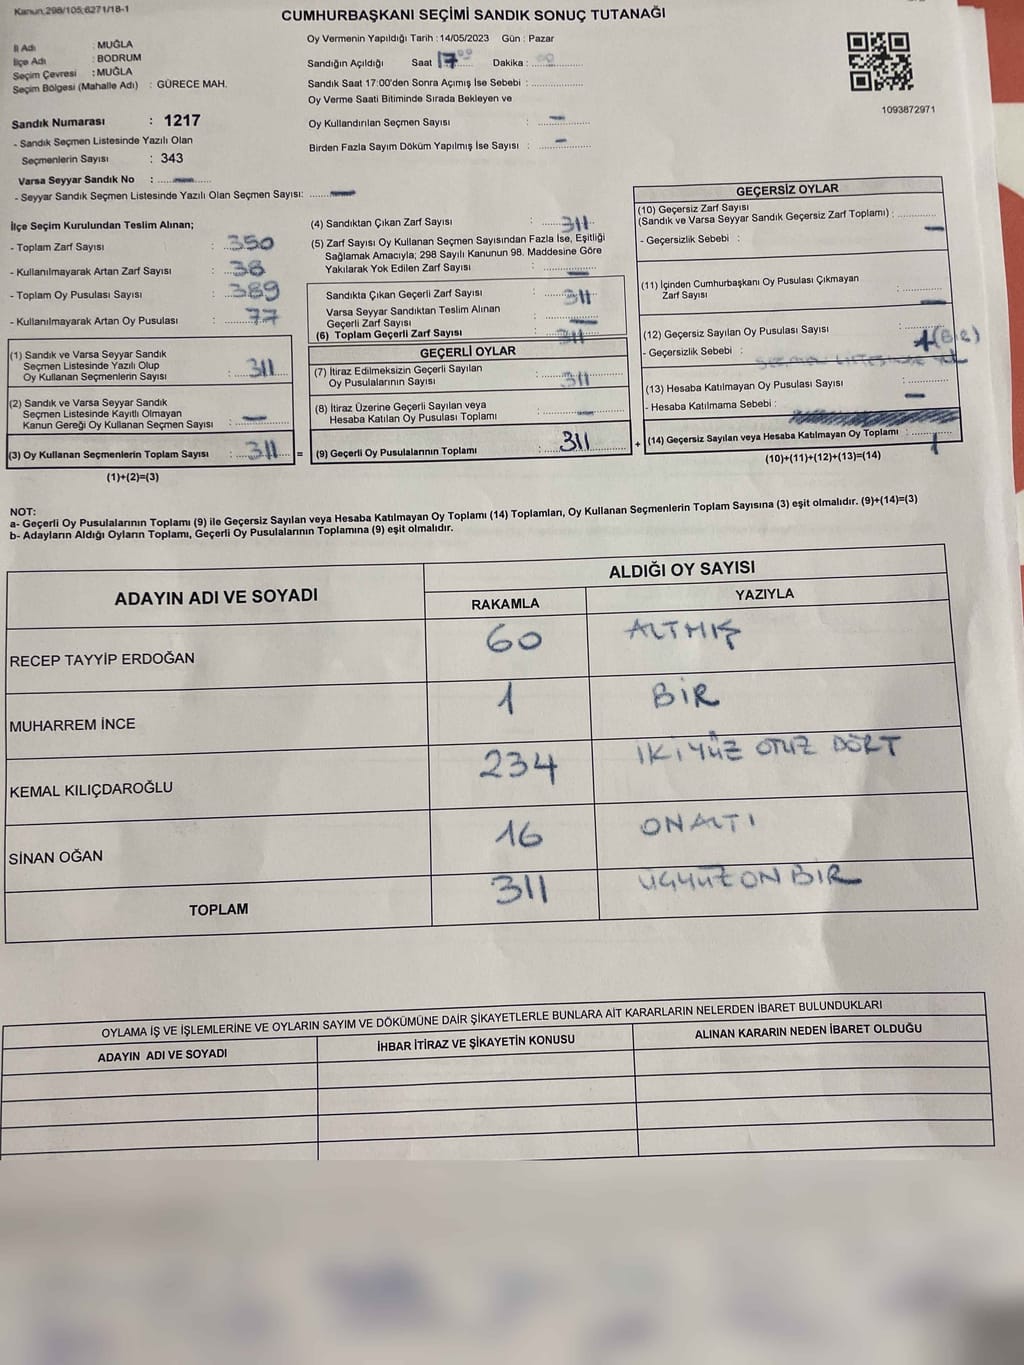 Kanun,298/105,6271/18-1
CUMHURBAŞKANI SEÇİMİ SANDIK SONUÇ TUTANAĞI
İl Adı : MUĞLA
İlçe Adı : BODRUM
Seçim Çevresi : MUĞLA
Seçim Bölgesi (Mahalle Adı) : GÜRECE MAH.
Sandık Numarası : 1217
- Sandık Seçmen Listesinde Yazılı Olan
Seçmenlerin Sayısı : 343
Varsa Seyyar Sandık No : —
- Seyyar Sandık Seçmen Listesinde Yazılı Olan Seçmen Sayısı: —
Oy Vermenin Yapıldığı Tarih : 14/05/2023 Gün : Pazar
Sandığın Açıldığı Saat 17⁰⁰ Dakika :
Sandık Saat 17:00'den Sonra Açımış İse Sebebi :
Oy Verme Saati Bitiminde Sırada Bekleyen ve
Oy Kullandırılan Seçmen Sayısı : —
Birden Fazla Sayım Döküm Yapılmış İse Sayısı : —
1093872971
İlçe Seçim Kurulundan Teslim Alınan;
- Toplam Zarf Sayısı : 350
- Kullanılmayarak Artan Zarf Sayısı : 38
- Toplam Oy Pusulası Sayısı : 389
- Kullanılmayarak Artan Oy Pusulası : 77
(1) Sandık ve Varsa Seyyar Sandık
Seçmen Listesinde Yazılı Olup
Oy Kullanan Seçmenlerin Sayısı : 311
(2) Sandık ve Varsa Seyyar Sandık
Seçmen Listesinde Kayıtlı Olmayan
Kanun Gereği Oy Kullanan Seçmen Sayısı : —
(3) Oy Kullanan Seçmenlerin Toplam Sayısı : 311 =
(1)+(2)=(3)
(4) Sandıktan Çıkan Zarf Sayısı : 311
(5) Zarf Sayısı Oy Kullanan Seçmen Sayısından Fazla İse, Eşitliği
Sağlamak Amacıyla; 298 Sayılı Kanunun 98. Maddesine Göre
Yakılarak Yok Edilen Zarf Sayısı : —
Sandıkta Çıkan Geçerli Zarf Sayısı : 311
Varsa Seyyar Sandıktan Teslim Alınan
Geçerli Zarf Sayısı : —
(6) Toplam Geçerli Zarf Sayısı : 311
GEÇERLİ OYLAR
(7) İtiraz Edilmeksizin Geçerli Sayılan
Oy Pusulalarının Sayısı : 311
(8) İtiraz Üzerine Geçerli Sayılan veya
Hesaba Katılan Oy Pusulası Toplamı : —
(9) Geçerli Oy Pusulalarının Toplamı : 311 +
GEÇERSİZ OYLAR
(10) Geçersiz Zarf Sayısı
(Sandık ve Varsa Seyyar Sandık Geçersiz Zarf Toplamı) : —
- Geçersizlik Sebebi :
(11) İçinden Cumhurbaşkanı Oy Pusulası Çıkmayan
Zarf Sayısı : —
(12) Geçersiz Sayılan Oy Pusulası Sayısı : 1 (BİR)
- Geçersizlik Sebebi : SEÇMEN LİSTESİNDE YOK
(13) Hesaba Katılmayan Oy Pusulası Sayısı : —
- Hesaba Katılmama Sebebi :
(14) Geçersiz Sayılan veya Hesaba Katılmayan Oy Toplamı : 1
(10)+(11)+(12)+(13)=(14)
NOT:
a- Geçerli Oy Pusulalarının Toplamı (9) ile Geçersiz Sayılan veya Hesaba Katılmayan Oy Toplamı (14) Toplamları, Oy Kullanan Seçmenlerin Toplam Sayısına (3) eşit olmalıdır. (9)+(14)=(3)
b- Adayların Aldığı Oyların Toplamı, Geçerli Oy Pusulalarının Toplamına (9) eşit olmalıdır.
ADAYIN ADI VE SOYADI
ALDIĞI OY SAYISI
RAKAMLA YAZIYLA
RECEP TAYYİP ERDOĞAN 60 ALTMIŞ
MUHARREM İNCE 1 BİR
KEMAL KILIÇDAROĞLU 234 İKİYÜZ OTUZ DÖRT
SİNAN OĞAN 16 ONALTI
TOPLAM 311 ÜÇYÜZ ON BİR
OYLAMA İŞ VE İŞLEMLERİNE VE OYLARIN SAYIM VE DÖKÜMÜNE DAİR ŞİKAYETLERLE BUNLARA AİT KARARLARIN NELERDEN İBARET BULUNDUKLARI
ADAYIN ADI VE SOYADI İHBAR İTİRAZ VE ŞİKAYETİN KONUSU ALINAN KARARIN NEDEN İBARET OLDUĞU